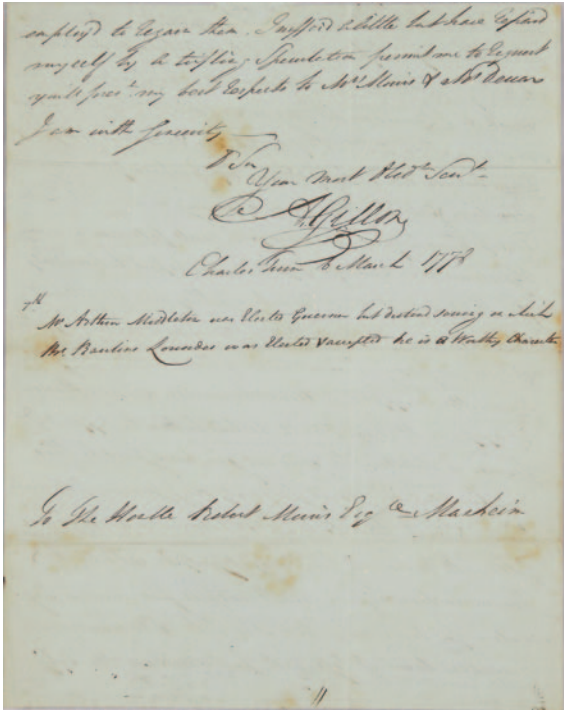 employ'd to regain them. I suffer'd a little but have repaid
myself by a trifling Speculation permit me to request
you'll pres.t my best respects to Mrs Morris & Mr
I am with Sincerity
D Sir
Your most Obed.t Serv.t
A Gillon
Charles Town 6 March 1778
7th
Mr Arthur Middleton was Elected Governor but declined serving on which
Mr Rawlins Lowndes was Elected & accepted he is a Worthy Character
To The Hoble Robert Morris Esq.re Manheim